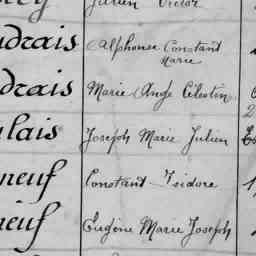 Julien Victor
drais Alphonse Constant
Marie
drais Marie Ange Célestin
lais Joseph Marie Julien
neuf Constant Isidore
neuf Eugène Marie Joseph